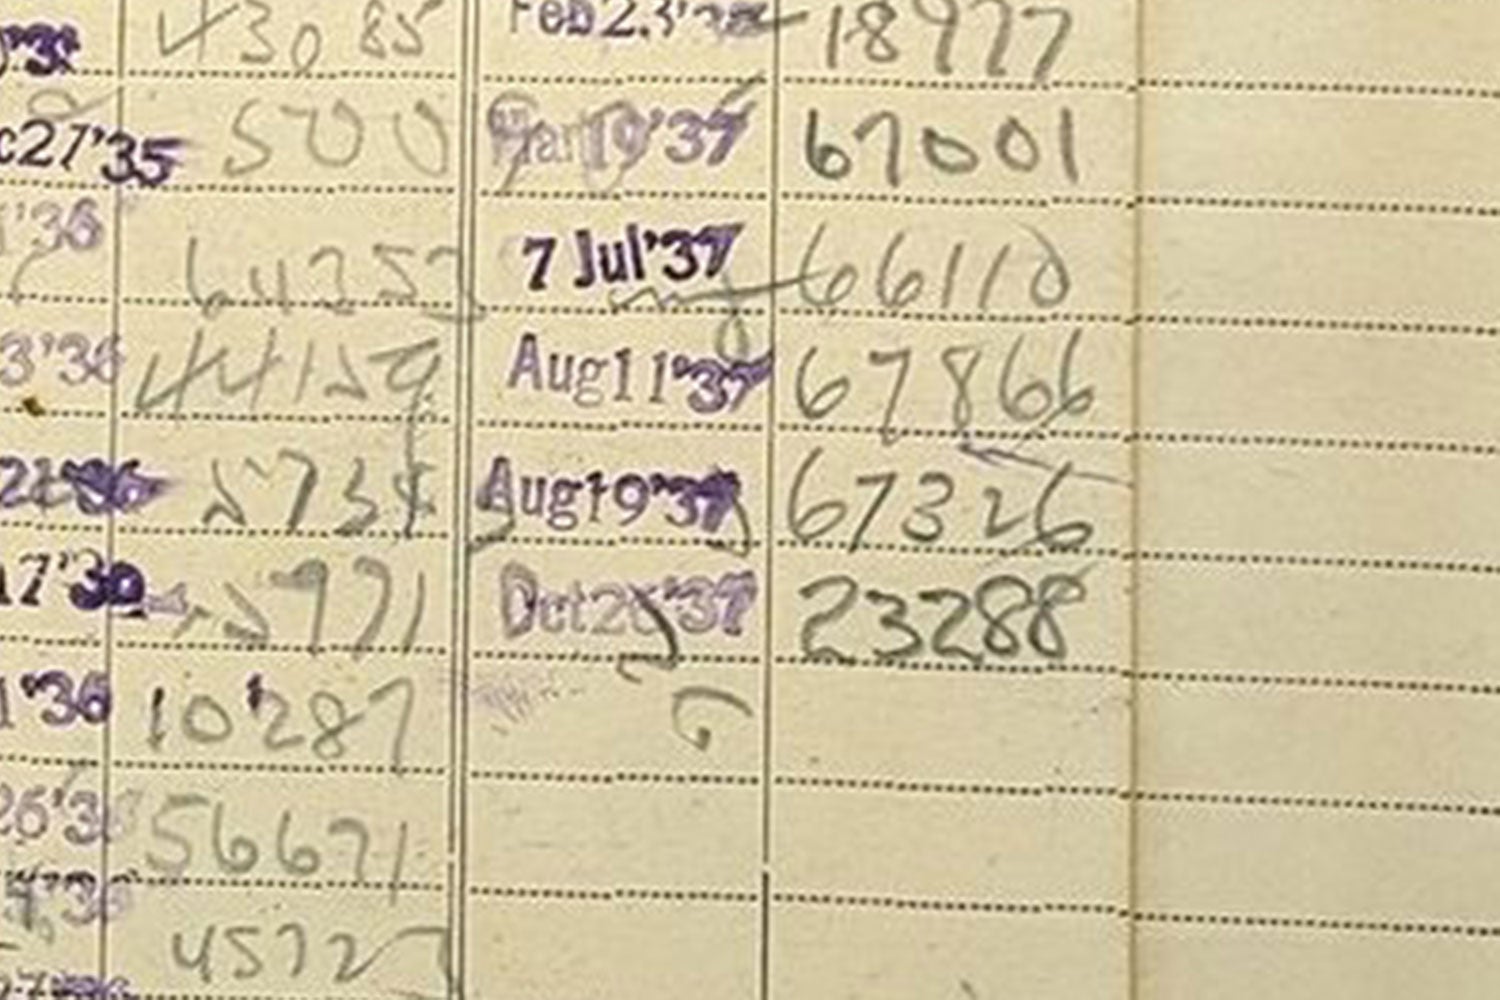 '36 43085 Feb 23'37 18977
c27'35 500 Mar 19'37 67001
'36 64252 7 Jul'37 66110
3'36 44159 Aug 11'37 67866
21'36 5735 Aug 19'37 67326
17'36 5771 Oct 26'37 23288
1'36 10287
26'36 56671
4'36 45727